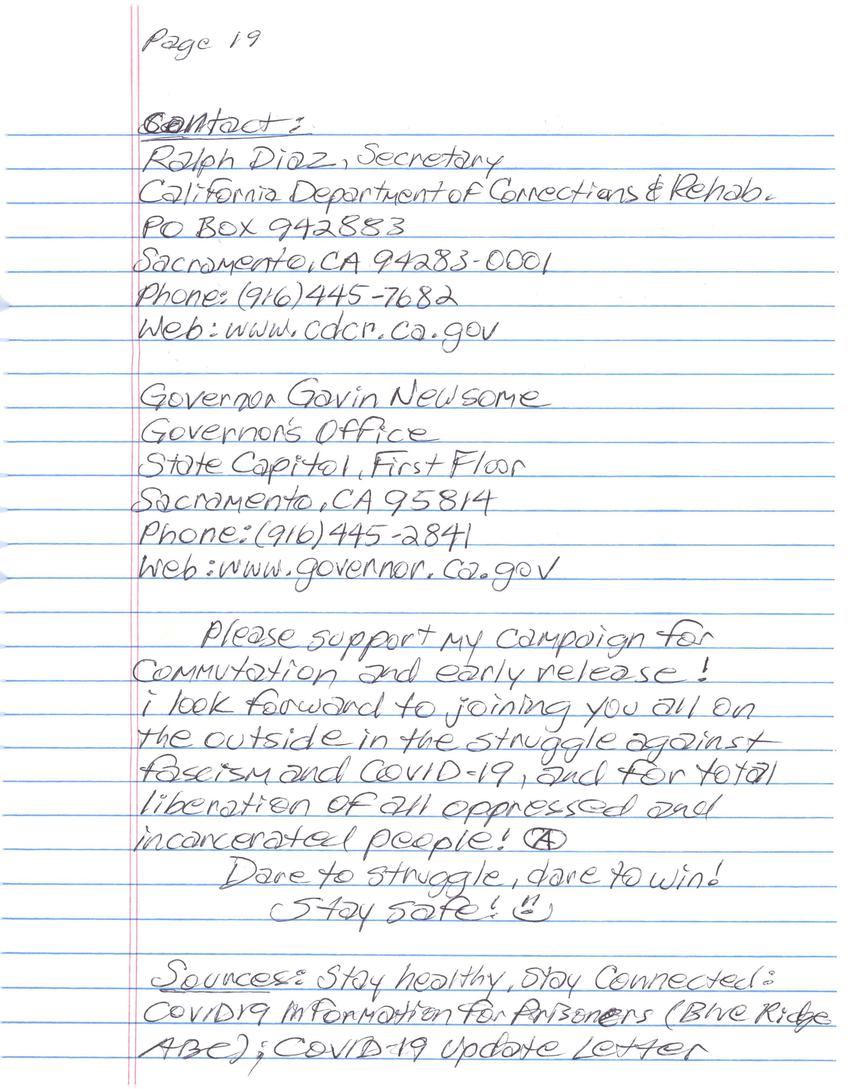 Page 19
Contact:
Ralph Diaz, Secretary
California Department of Corrections & Rehab.
PO BOX 942883
Sacramento, CA 94283-0001
Phone: (916) 445-7682
Web: www.cdcr.ca.gov
Governor Gavin Newsome
Governor's Office
State Capitol, First Floor
Sacramento, CA 95814
Phone: (916) 445-2841
Web: www.governor.ca.gov
Please support my campaign for
commutation and early release!
i look forward to joining you all on
the outside in the struggle against
fascism and COVID-19, and for total
liberation of all oppressed and
incarcerated people! Ⓐ
Dare to struggle, dare to win!
Stay safe! ☺
Sources: Stay healthy, Stay Connected:
COVID19 Information For Prisoners (Blue Ridge
ABC); COVID-19 Update Letter